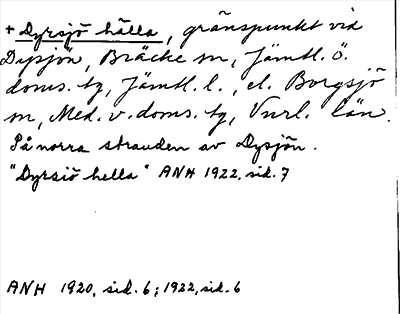 + Dyrsjö hälla, gränspunkt vid
Dysjön, Bräcke sn, Jämtl. Ö.
doms. tg, Jämtl. l., el. Borgsjö
sn, Med. v. doms. tg, Vnrl. län.
På norra stranden av Dysjön.
"Dyrsiö hella" ANH 1922, sid. 7
ANH 1920, sid. 6; 1922, sid. 6